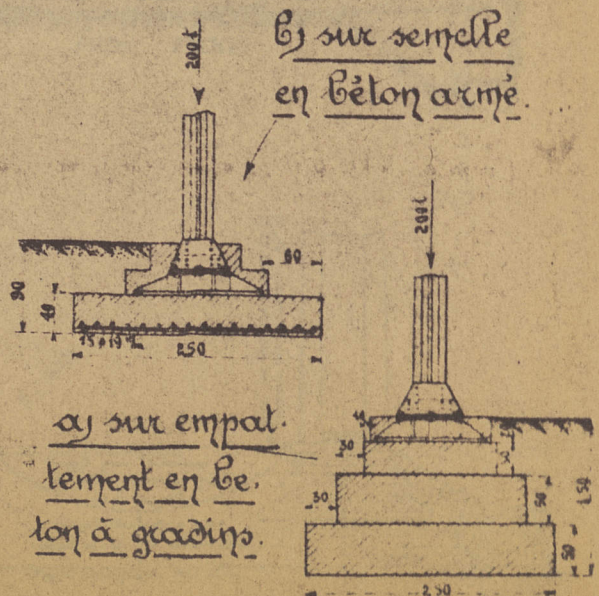 b) sur semelle
en béton armé.
200t
60
90
40
250
200t
a) sur empat-
tement en be-
ton à gradins.
30
30
50
50
150
250